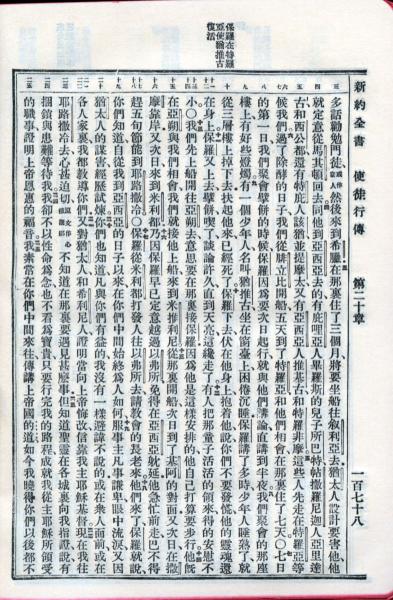 保羅在特羅亞使猶推古復活
新約全書 使徒行傳 第二十章 一百七十八
多話勸勉門徒然後來到希臘在那裏住了三個月將要坐船往叙利亞去猶太人設計要害他他
就定意從馬其頓回去同他到亞西亞去的有庇哩亞人畢羅斯的兒子所巴特帖撒羅尼迦人亞里達
古和西公都還有特庇人該猶並提摩太又有亞西亞人推基古和特羅非摩這些人先走在特羅亞等
候我們過了除酵的日子我們從腓立比開船五天到了特羅亞和他們相會在那裏住了七天○七日
的第一日我們聚會擘餅的時候保羅因爲要次日起行就與他們講論直講到半夜我們聚會的那座
樓上有好些燈燭有一個少年人名叫猶推古坐在窗臺上困倦沉睡保羅講了多時少年人睡熟了就
從三層樓上掉下去扶起他來已經死了保羅下去伏在他身上抱着他說你們不要發慌他的靈魂還
在身上保羅又上去擘餅喫了談論許久直到天亮這纔走了有人把那童子活活的領來得的安慰不
小○我們先上船開往亞朔去意思要在那裏接保羅因爲他是這樣安排的他自己打算要步行他既
在亞朔與我們相會我們就接他上船來到米推利尼從那裏開船次日到了基阿的對面又次日在撒
摩靠岸又次日來到米利都乃因保羅早已定意越過以弗所免得在亞西亞躭延他急忙前走巴不得
趕五旬節能到耶路撒冷○保羅從米利都打發人往以弗所去請教會的長老來他們來了保羅就說
你們知道自從我到亞西亞的日子以來在你們中間始終爲人如何服事主凡事謙卑眼中流淚又因
猶太人的謀害經歷試煉你們也知道凡與你們有益的我沒有一樣避諱不說的或在衆人面前或在
各人家裏我都教導你們又對猶太人和希利尼人證明當向上帝悔改信靠我主耶穌基督現在我往
耶路撒冷去心甚迫切不知道在那裏要遇見甚麼事但知道聖靈在各城裏向我指證說有
捆鎖與患難等待我我卻不以性命爲念也不看爲寶貴只要行完我的路程成就我從主耶穌所領受
的職事證明上帝恩惠的福音我素常在你們中間來往傳講上帝國的道如今我曉得你們以後都不